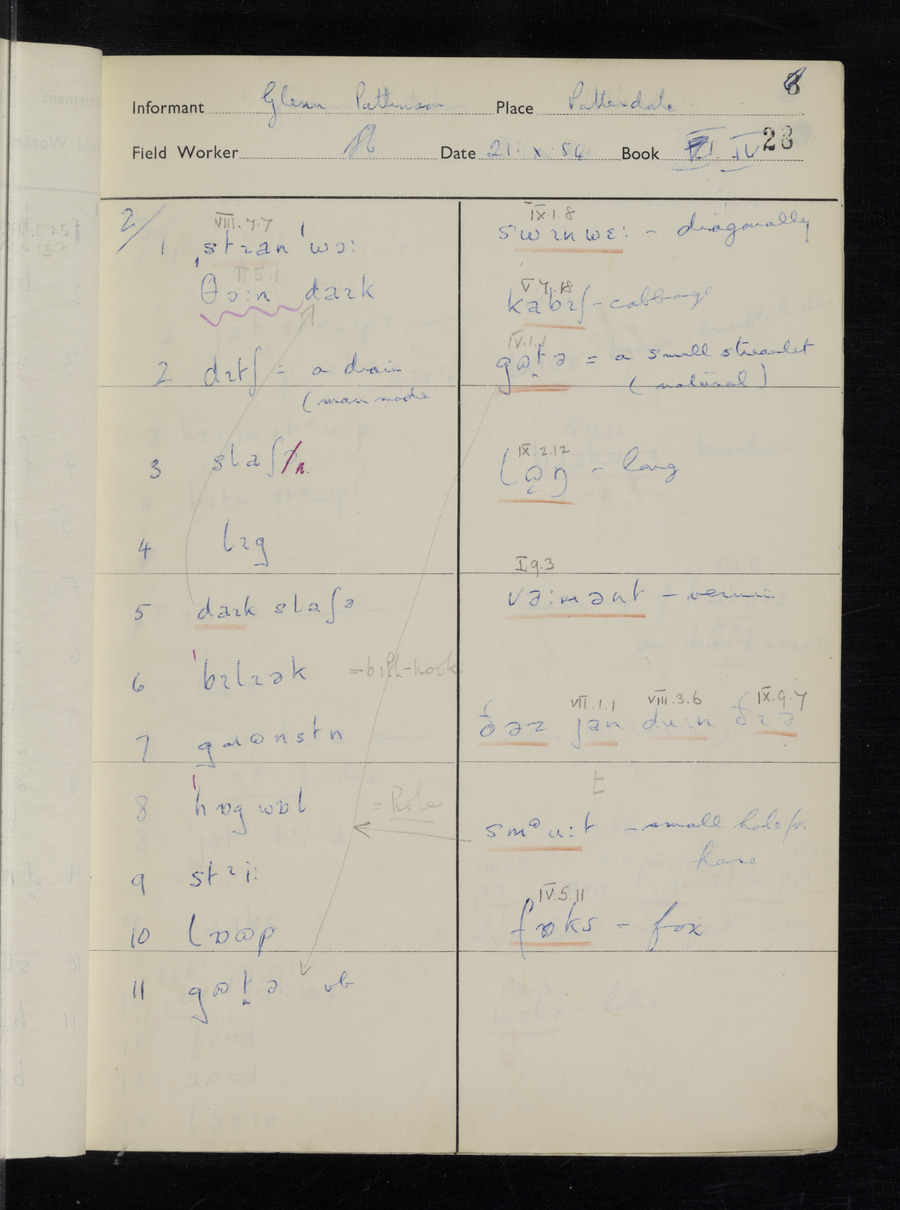 6
Informant Glenn Pattinson Place Patterdale
Field Worker Date 21 · x · 54 Book IV 23
2/
VIII.7.7
1 ˌstɪan ˈwɔ:
II.5.1
θɔ:n daɪk
2 dɪtʃ = a drain
(man made
3 slaʃ
4 lɪg
5 daɪk slaʃə
6 ˈbɪlɪək = bill-hook
7 gɹɷnstn
8 ˈhɒg wɒl = hole
9 stɪi:
10 lɒɷp
11 gɷt̪ə vb
IX.1.8
swɪnwɛ: - diagonally
V.7.18
kabɪʃ - cabbage
IV.1.1
gɷt̪ə = a small streamlet
(natural)
IX.2.12
lɷŋ - long
I.9.3
və:mənt - vermin
VII.1.1 VIII.3.6 IX.9.7
ðəɪ jan du:n ðɪə
t
smᵊu:t - small hole for
hare
IV.5.11
fɒks - fox